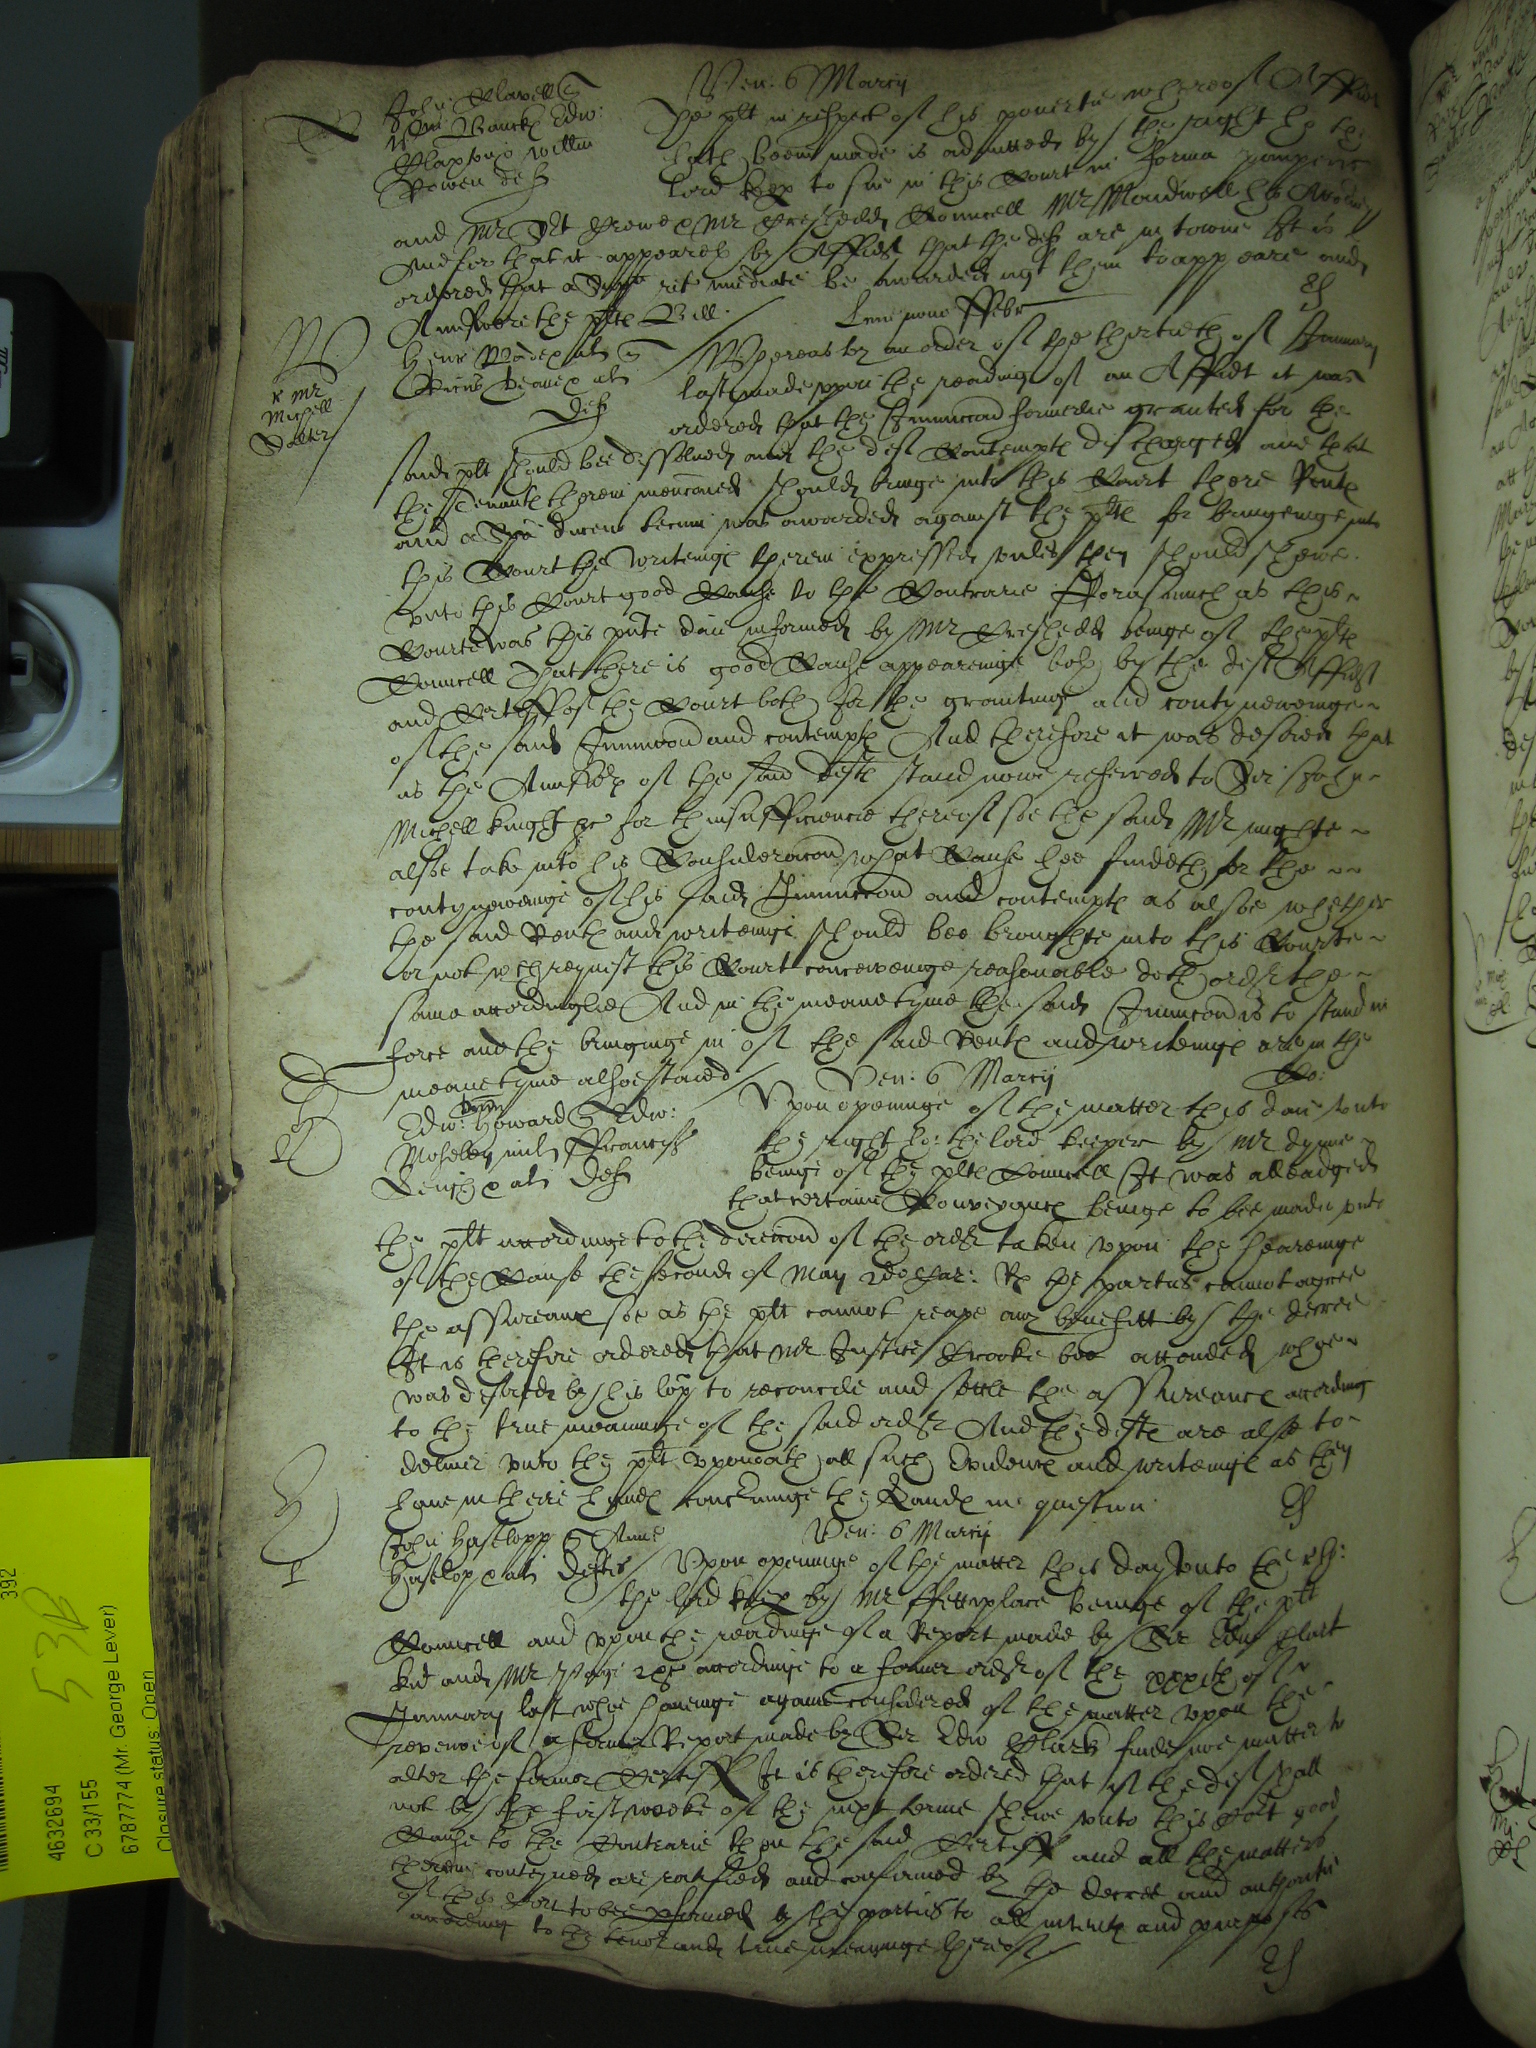 Ven: 6 Marcij
John Clavell
Edw:
Claxton Willm
Bowen defs
The plt in respect of his povertie whereof Affidt
hath beene made is admitted by the right ho: the
lord kep to sue in this Court in forma pauperis
and Mr Cresheld Councell Mr Maudwell his Attorney
And for that it appeareth by Affidt that the defs are in towne It is
ordered that a Subp imediate be awarded agt them to appeare and
Answere the plts Bill.
Lune nono Febr
r Mr
Michell
Defts
Whereas by an order of the thirtieth of January
last made uppon the reading of an Affidt it was
ordered that the Iniunccon formerlie granted for the
said plt should bee dissolued and the defts Contempts discharged and that
the Tenants therein mencioned should bringe into this Court there Rents
and a Spa ducens tecum was awarded against the plts for bringeinge into
this Court the writeings therein expressed unles they should shewe
unto this Court good Cause to the Contrarie Forasmuch as this
Court was this pnte daie informed by Mr Cresheld beinge of the plts
Councell That there is good Cause appeareinge both by the defts Affidt
and Certiff of the Court both for the grantinge and contynewinge
of the said Iniunccon and contempts And therefore it was desired that
as the Answers of the said defts stand nowe referred to Sir John
Michell knight &c for thinsufficiencie thereof soe the said Mr mighte
alsoe take into his Consideracon what Cause hee findeth for the
contynewinge of his said Iniunccon and contempts as alsoe whether
the said Rents and writeings should bee broughte into this Courte
or not wch request this Court conceiveinge reasonable doth order the
same accordinglie And in the meane tyme the said Iniunccon is to stand in
force and the bringinge in of the said Rents and writeings are in the
meane tyme alsoe staied
Ven: 6 Marcij
Co:
Edw: Howard Edw:
Moseley mil Francis
Leigh et al defs
Upon openinge of the matter this daie unto
the right ho: the lord keeper by Mr Dynne
beinge of the plts Councell It was alleadged
that certaine Conveyance beinge to bee made unto
the plt accordinge to the direccon of the order taken upon the heareinge
of the Cause the second of May 2do Car: Rs the parties cannot agree
the assureance soe as the plt cannot reape any benefitt by the decree
It is therefore ordered that Mr Justice Crooke bee attended whoe
was desired by his lop to reconcile and settle the assureance according
to the true meaninge of the said order And the defts are alsoe to
deliver unto the plt upon oath all such Evidence and writeings as they
have in theire hands concerninge the Lands in question
Ven: 6 Marcij
John Haselopp Anne
Haselop et al defts
Upon openinge of the matter this day unto the rt ho:
the lord keep by Mr Fettiplace beinge of the plts
Councell and upon the readinge of a Report made by Sir Edw Clark
knt and Mr Page &c accordinge to a former order of the xxxith of
January last whoe haveinge againe considered of the matter upon the
reveiwe of a former Report made by Sir Edw Clark finde noe matter to
alter the former Certiff It is therefore ordered that if the deft shall
not by the first weeke of the next terme shewe unto this Cort good
Cause to the Contrarie then the said Certiff and all the matters
therein conteyned are ratified and confirmed by the decree and authoritie
of this Cort to bee pformed by the parties to all intents and purposes
according to the tenor and true meaninge thereof
392
53B
4632694
C 33/155
6787774 (Mr. George Lever)
Closure status: Open